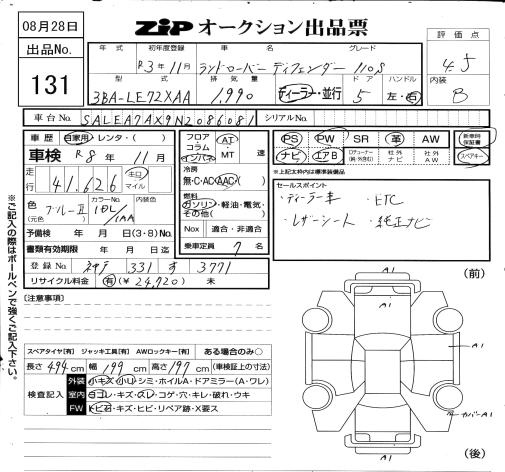 08月28日
ZIP オークション出品票
出品No.
131
評価点
4.5
内装
B
年式 初年度登録 車名 グレード
R.3年11月 ランドローバー ディフェンダー 110S
型式 排気量 ドア ハンドル
3BA-LE72XAA 1,990 ディーラー・並行 5 左・右
車台No. SALEA7AX9N2086081 シリアルNo.
車歴 自家用・レンタ・( )
車検 R8年11月
走行 41,626 キロ マイル
色 ブルーⅡ (元色) カラーNo. 1DL/1AA 内装色
予備検 年 月 日(3・8)No.
書類有効期限 年 月 日迄
登録No. 神戸 331 す 3771
リサイクル料金 有(¥24,720) 未
フロア コラム インパネ AT MT 速
冷房 無・C・AC・AAC・( )
燃料 ガソリン・軽油・電気・その他( )
Nox 適合・非適合
乗車定員 7名
PS PW SR 革 AW
ナビ エアB 社外ナビ 社外AW
新車時保証書
スペアキー
※上記太枠内は標準装備品
セールスポイント
・ディーラー車 ・ETC
・レザーシート ・純正ナビ
※ご記入の際はボールペンで強くご記入下さい。
[注意事項]
(前)
A1
A1
A1
カバーA1
A1
(後)
スペアタイヤ[有] ジャッキ工具[有] AWロックキー[有] ある場合のみ○
長さ 494cm 幅 199cm 高さ 197cm (車検証上の寸法)
検査記入
外装 小キズ・小凹・シミ・ホイルA・ドアミラー(A・ワレ)
室内 ヨゴレ・キズ・スレ・コゲ・穴・キレ・破れ・ウキ
FW トビ石・キズ・ヒビ・リペア跡・X要ス